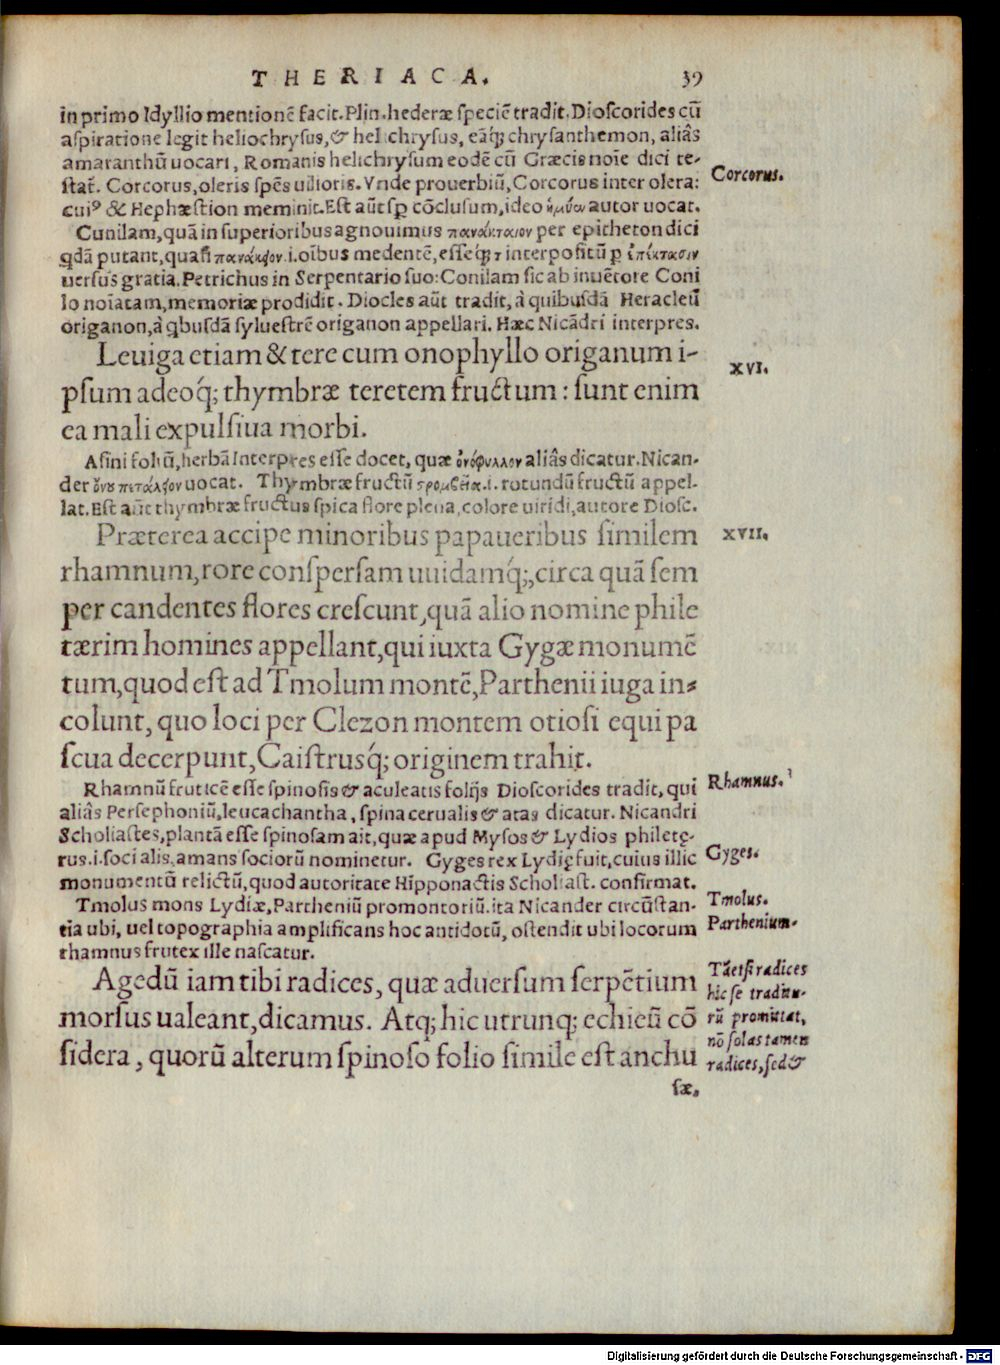 THERIACA. 39
in primo Idyllio mentionē facit. Plin. hederæ speciē tradit. Dioscorides cū
aspiratione legit heliochrysus, & helichrysus, eāq; chrysanthemon, aliâs
amaranthū uocari, Romanis helichrysum eodē cū Græcis noīe dici te-
stat̄. Corcorus, oleris spēs uilioris. Vnde prouerbiū, Corcorus inter olera:
Corcorus.
cui⁹ & Hephæstion meminit. Est aūt sp̱ cōclusum, ideo ἡμύον autor uocat.
Cunilam, quā in superioribus agnouimus πανάκταιον per epitheton dici
q̄dā putant, quasi πανάκειον .i. oībus medentē, esseq́; τ interpositū p̱ ἐπέκτασιν
uersus gratia. Petrichus in Serpentario suo: Conilam sic ab inuētore Coni
lo noīatam, memoriæ prodidit. Diocles aūt tradit, à quibusdā Heracleū
origanon, à qbusdā syluestrē origanon appellari. Hæc Nicādri interpres.
Leuiga etiam & tere cum onophyllo origanum i-
XVI.
psum adeoq́; thymbræ teretem fructum: sunt enim
ea mali expulsiua morbi.
Asini foliū, herbā Interpres esse docet, quæ ὀνόφυλλον aliâs dicatur. Nican-
der ὄνου πετάλειον uocat. Thymbræ fructū τρομβεῖα .i. rotundū fructū appel-
lat. Est aūt thymbræ fructus spica flore plena, colore uiridi, autore Diosc.
Præterea accipe minoribus papaueribus similem
XVII.
rhamnum, rore conspersam uuidamq́;, circa quā sem
per candentes flores crescunt, quā alio nomine phile
tærim homines appellant, qui iuxta Gygæ monumē
tum, quod est ad Tmolum montē, Parthenii iuga in-
colunt, quo loci per Clezon montem otiosi equi pa
scua decerpunt, Caistrusq́; originem trahit.
Rhamnū fruticē esse spinosis & aculeatis folijs Dioscorides tradit, qui
Rhamnus.
aliâs Persephoniū, leucachantha, spina cerualis & atas dicatur. Nicandri
Scholiastes, plantā esse spinosam ait, quæ apud Mysos & Lydios philetę-
rus .i. socialis, amans sociorū nominetur. Gyges rex Lydię fuit, cuius illic
Gyges.
monumentū relictū, quod autoritate Hipponactis Scholiast. confirmat.
Tmolus mons Lydiæ, Partheniū promontoriū. ita Nicander circūstan-
Tmolus.
tia ubi, uel topographia amplificans hoc antidotū, ostendit ubi locorum
Parthenium.
rhamnus frutex ille nascatur.
Agedū iam tibi radices, quæ aduersum serpētium
Tāetsi radices
hic se traditu-
morsus ualeant, dicamus. Atq; hic utrunq; echieū cō
rū promittat,
nō solas tamen
sidera, quorū alterum spinoso folio simile est anchu
radices, sed &
sæ,
Digitalisierung gefördert durch die Deutsche Forschungsgemeinschaft - DFG